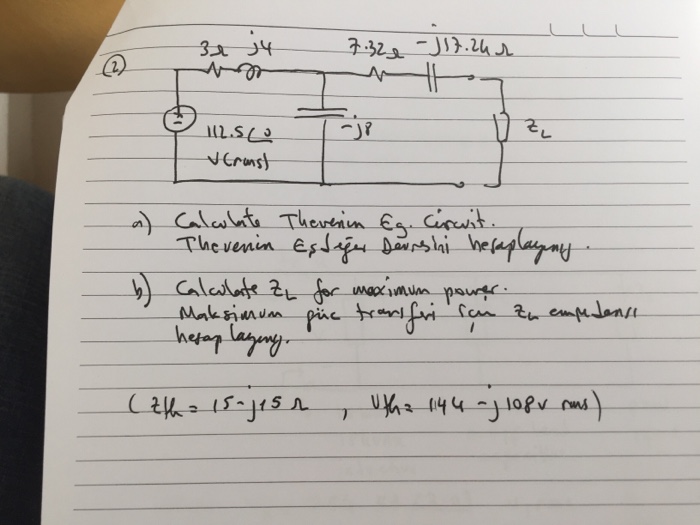 3Ω j4 7.32Ω -j17.24Ω
(2)
112.5∠0 -j8 ZL
V(rms)
a) Calculate Thevenin Eq. Circuit.
Thevenin Eşdeğer Devresini hesaplayınız.
b) Calculate ZL for maximum power.
Maksimum güc transferi için ZL empedansı
hesaplayınız.
(Zth = 15-j15Ω , Vth = 144-j108V rms)